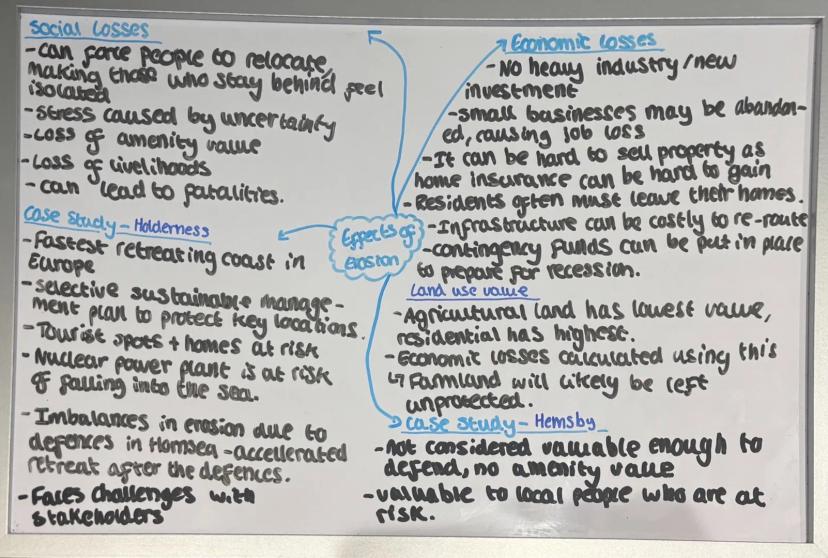 Social Losses
- can force people to relocate,
making those who stay behind feel
isolated
- stress caused by uncertainty
- Loss of amenity value
- Loss of livelihoods
- can lead to fatalities.
Case Study - Holderness
- Fastest retreating coast in
Europe
- selective sustainable manage-
ment plan to protect key locations.
- Tourist spots + homes at risk
- Nuclear power plant is at risk
of falling into the sea.
- Imbalances in erosion due to
defences in Hornsea - accellerated
retreat after the defences.
- Faces challenges with
stakeholders
Effects of
erosion
Economic losses
- No heavy industry/new
investment
- small businesses may be abandon-
ed, causing job loss
- It can be hard to sell property as
home insurance can be hard to gain
- Residents often must leave their homes.
- Infrastructure can be costly to re-route
- contingency funds can be put in place
to prepare for recession.
Land use value
- Agricultural land has lowest value,
residential has highest.
- Economic losses calculated using this
↳ Farmland will likely be left
unprotected.
Case study - Hemsby
- not considered valuable enough to
defend, no amenity value
- valuable to local people who are at
risk.